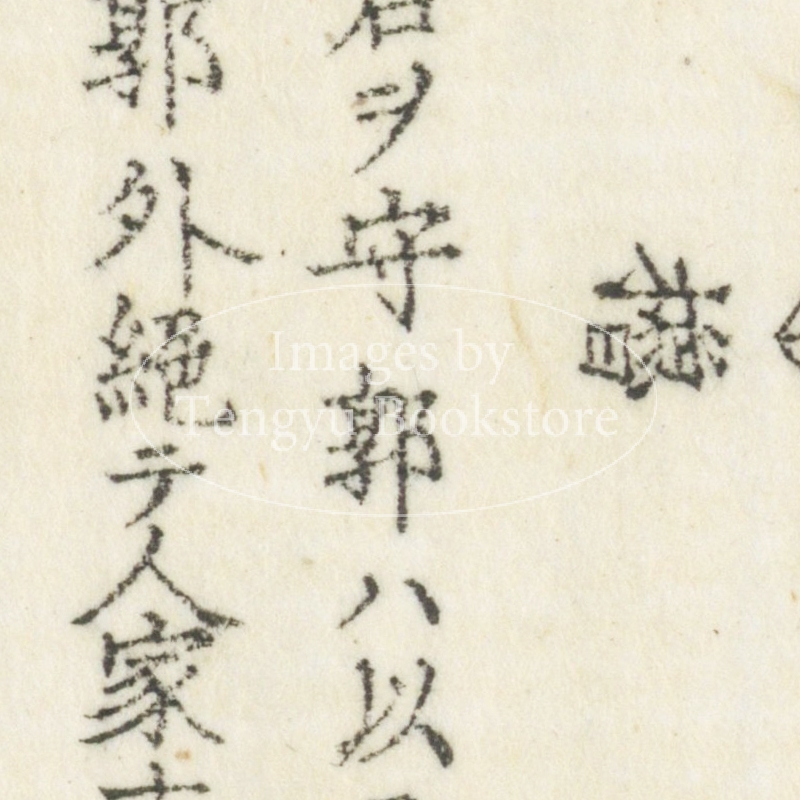 櫓
君ヲ守郭ハ以
郭外絶テ人家
Images by
Tengyu Bookstore